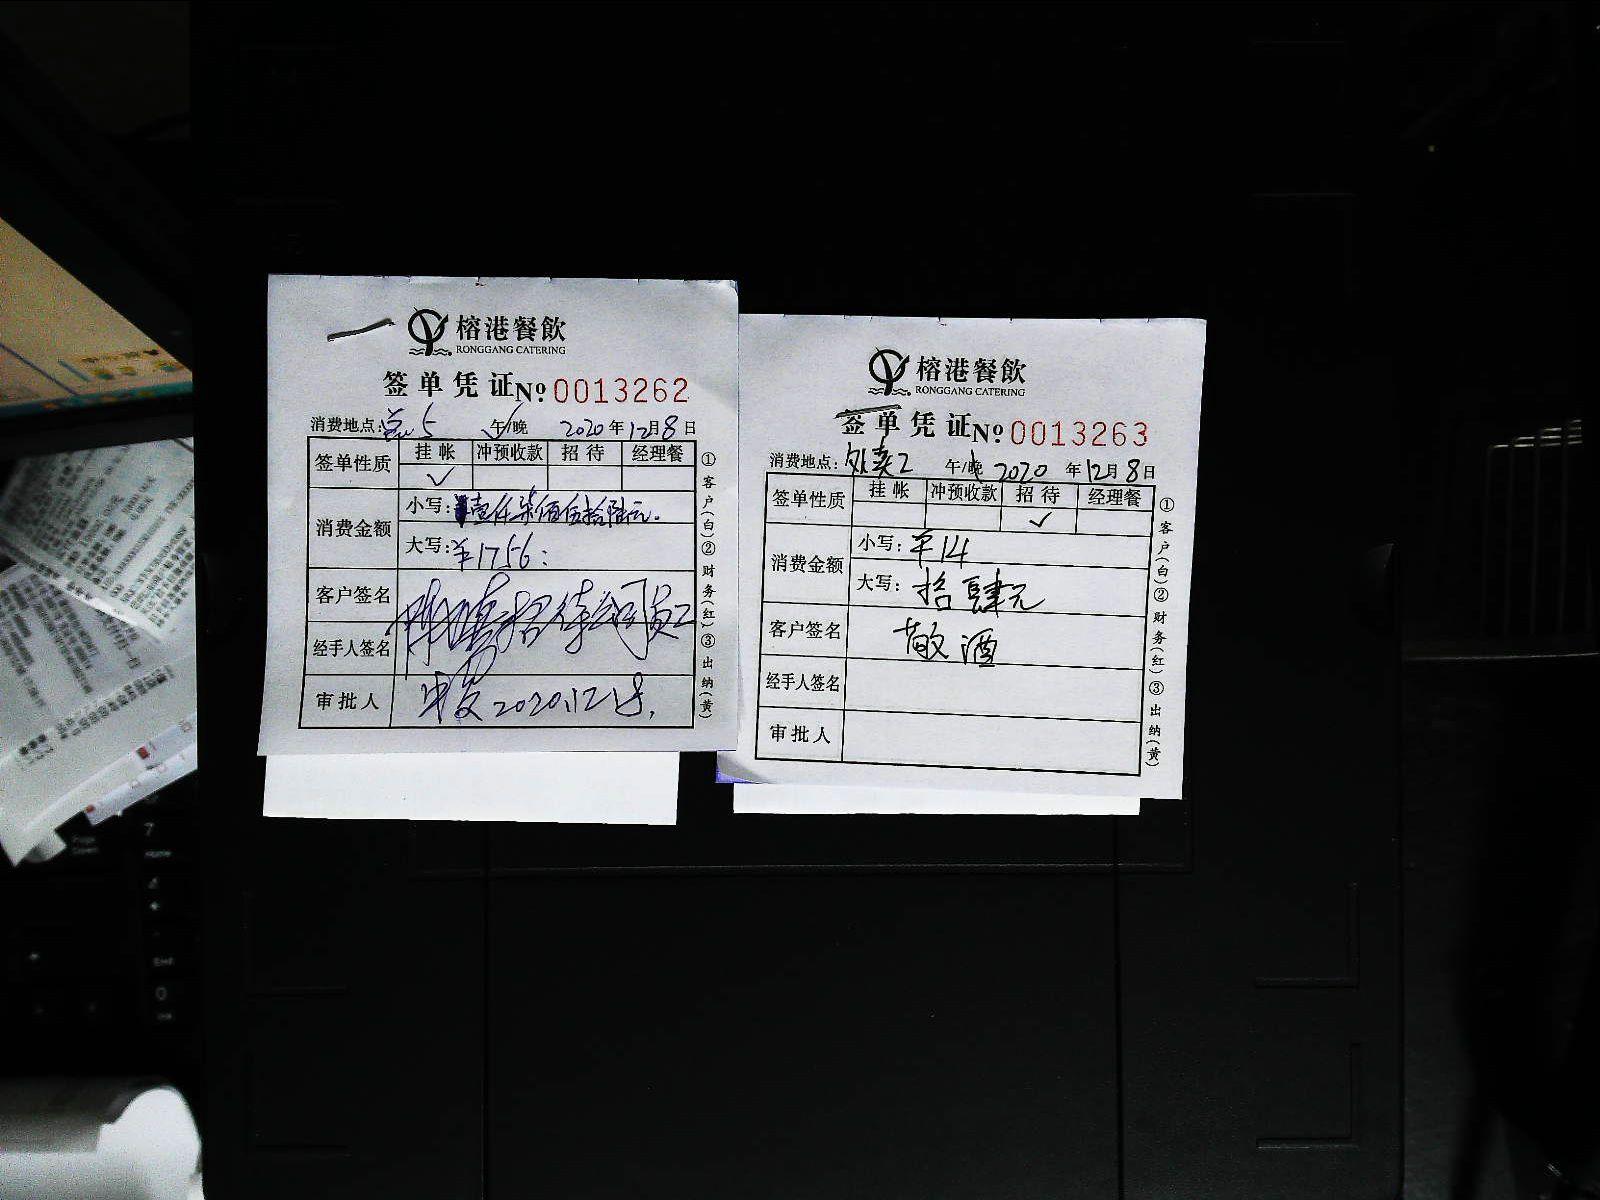 榕港餐飲
RONGGANG CATERING
签单凭证 № 0013262
消费地点: 5 午/晚 2020年12月8日
签单性质 挂帐 冲预收款 招待 经理餐
✓
消费金额
小写: 壹仟柒佰伍拾陆元.
大写: ¥1756:
客户签名
招待公司员工
经手人签名
审批人 2020.12.8.
①客户(白)②财务(红)③出纳(黄)
榕港餐飲
RONGGANG CATERING
签单凭证 № 0013263
消费地点: 外卖2 午/晚 2020年12月8日
签单性质 挂帐 冲预收款 招待 经理餐
✓
消费金额
小写: ¥14
大写: 拾肆元
客户签名 敬酒
经手人签名
审批人
①客户(白)②财务(红)③出纳(黄)